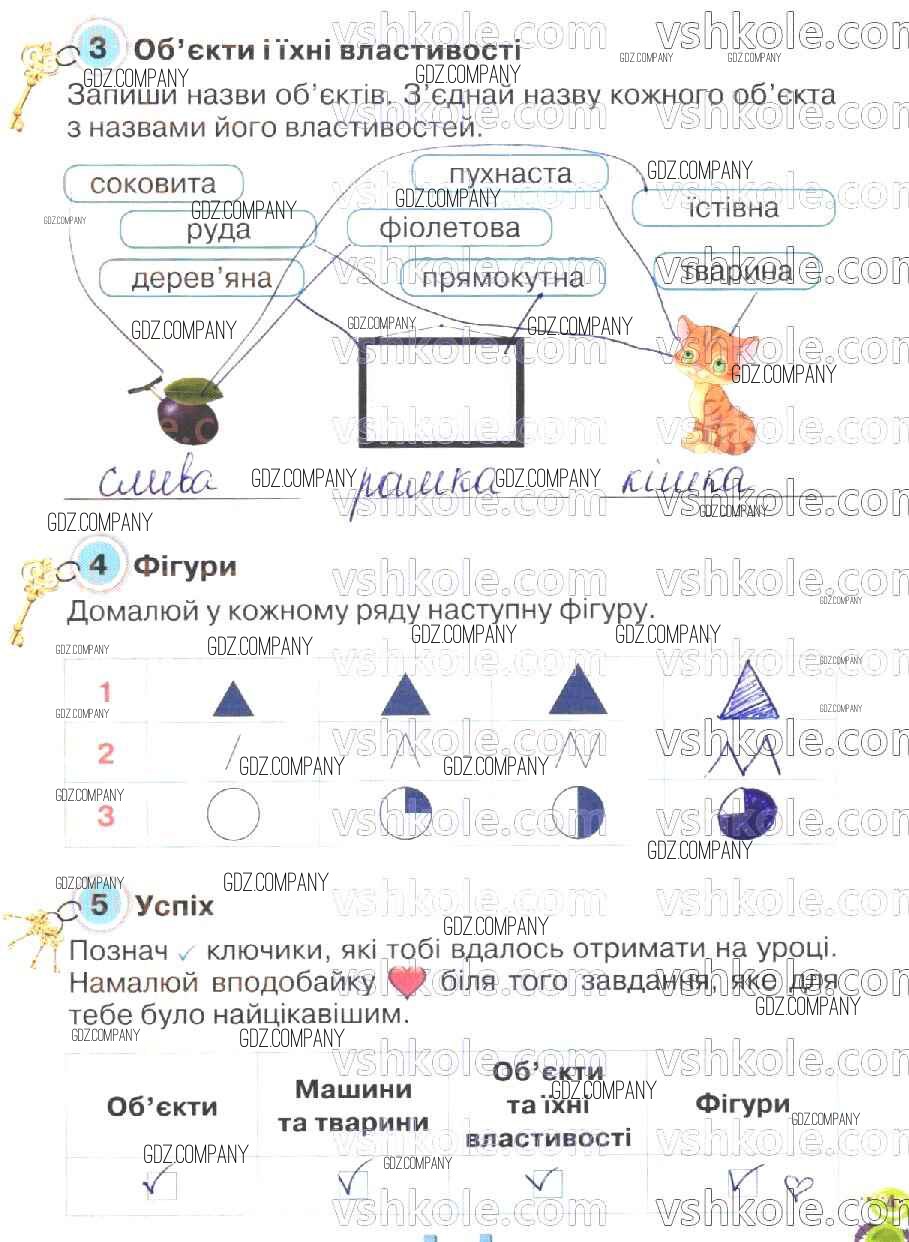 3 Об’єкти і їхні властивості
Запиши назви об’єктів. З’єднай назву кожного об’єкта
з назвами його властивостей.
соковита
пухнаста
їстівна
руда
фіолетова
дерев’яна
прямокутна
тварина
слива
рамка
кішка
4 Фігури
Домалюй у кожному ряду наступну фігуру.
1
2
3
5 Успіх
Познач ✓ ключики, які тобі вдалось отримати на уроці.
Намалюй вподобайку ❤ біля того завдання, яке для
тебе було найцікавішим.
Об’єкти
Машини
та тварини
Об’єкти
та їхні
властивості
Фігури
vshkole.com
GDZ.COMPANY